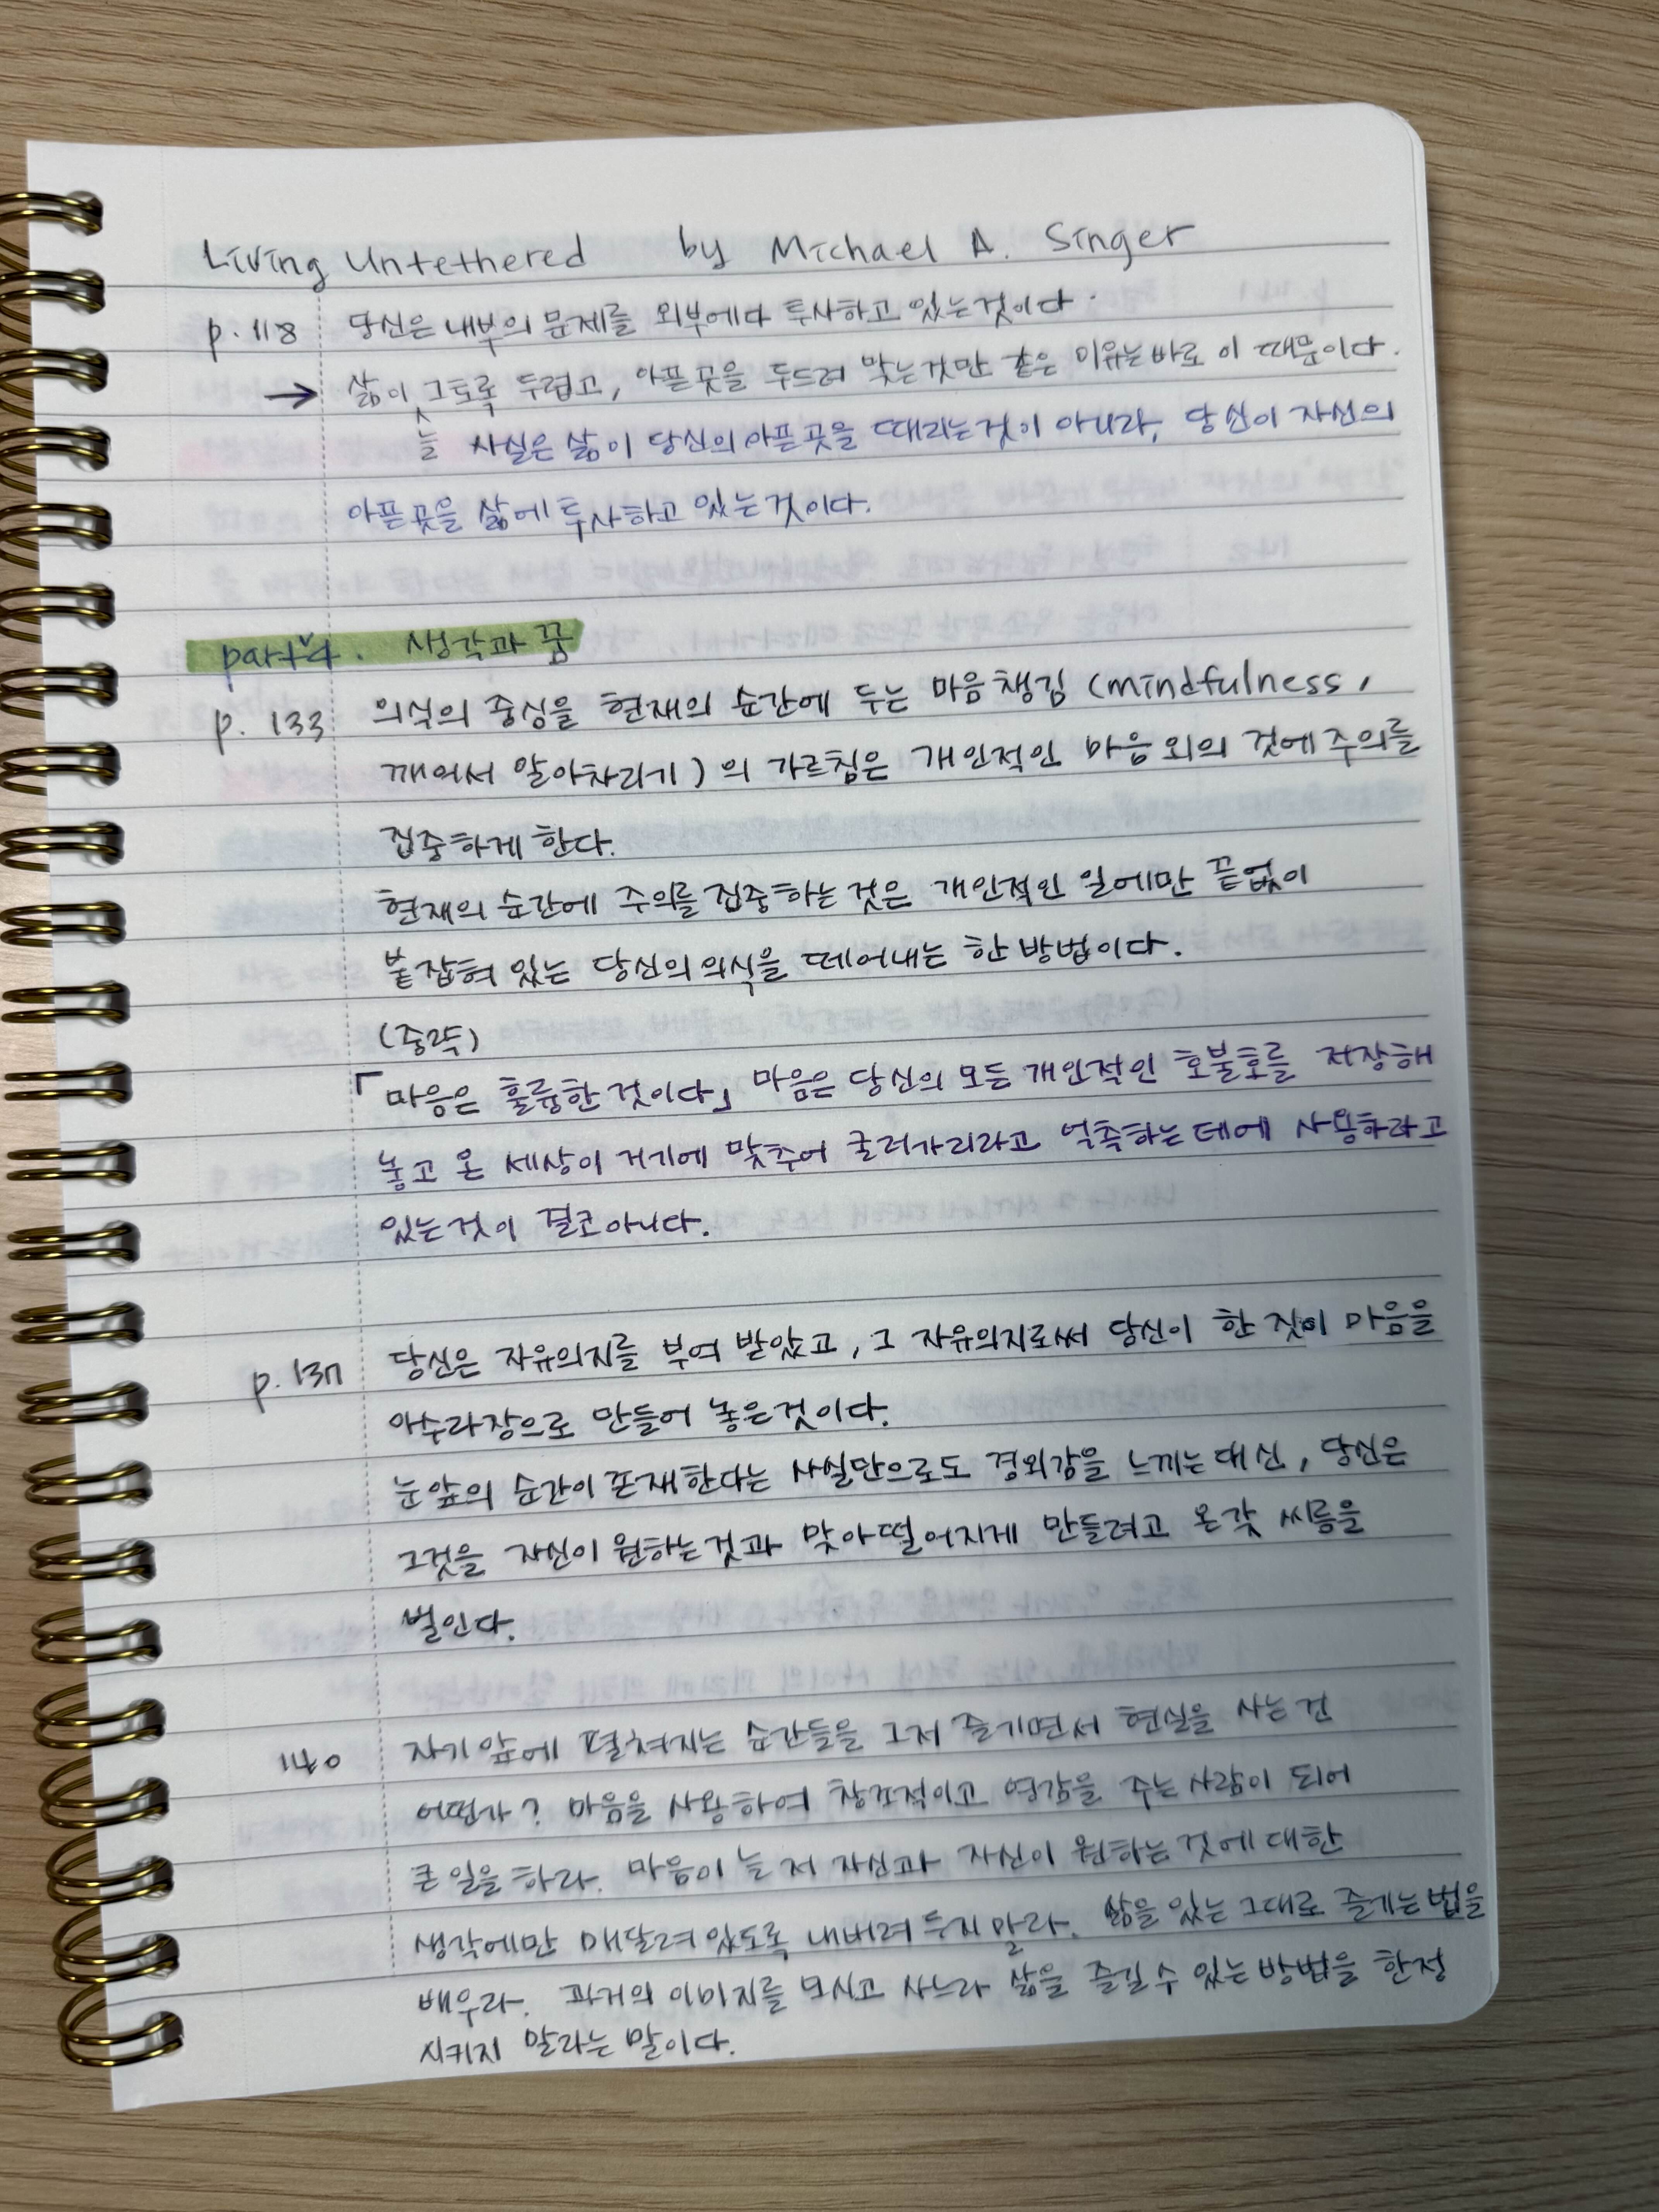 Living Untethered by Michael A. Singer
p. 118 당신은 내부의 문제를 외부에다 투사하고 있는것이다.
→ 삶이 늘 그토록 두렵고, 아픈 곳을 두드려 맞는것만 같은 이유는바로 이 때문이다.
사실은 삶이 당신의아픈곳을 때리는것이 아니라, 당신이 자신의
아픈곳을 삶에 투사하고 있는것이다.
part 4. 생각과 꿈
p. 133 의식의 중심을 현재의 순간에 두는 마음챙김 (mindfulness,
깨어서 알아차리기)의 가르침은 개인적인 마음 외의 것에 주의를
집중하게 한다.
현재의 순간에 주의를 집중하는 것은 개인적인 일에만 끝없이
붙잡혀 있는 당신의 의식을 떼어내는 한 방법이다.
(중략)
「마음은 훌륭한 것이다」 마음은 당신의 모든 개인적인 호불호를 저장해
놓고 온 세상이 거기에 맞추어 굴러가리라고 억측하는데에 사용하라고
있는것이 결코아니다.
p. 137 당신은 자유의지를 부여 받았고, 그 자유의지로써 당신이 한 짓이 마음을
아수라장으로 만들어 놓은것이다.
눈앞의 순간이 존재한다는 사실만으로도 경외감을 느끼는대신, 당신은
그것을 자신이 원하는것과 맞아떨어지게 만들려고 온갖 씨름을
벌인다.
140 자기 앞에 펼쳐지는 순간들을 그저 즐기면서 현실을 사는건
어떤가? 마음을 사용하여 창조적이고 영감을 주는 사람이 되어
큰 일을 하라. 마음이 늘 저 자신과 자신이 원하는 것에 대한
생각에만 매달려 있도록 내버려 두지 말라. 삶을 있는 그대로 즐기는 법을
배우라. 과거의 이미지를 모시고 사느라 삶을 즐길 수 있는 방법을 한정
시키지 말라는 말이다.